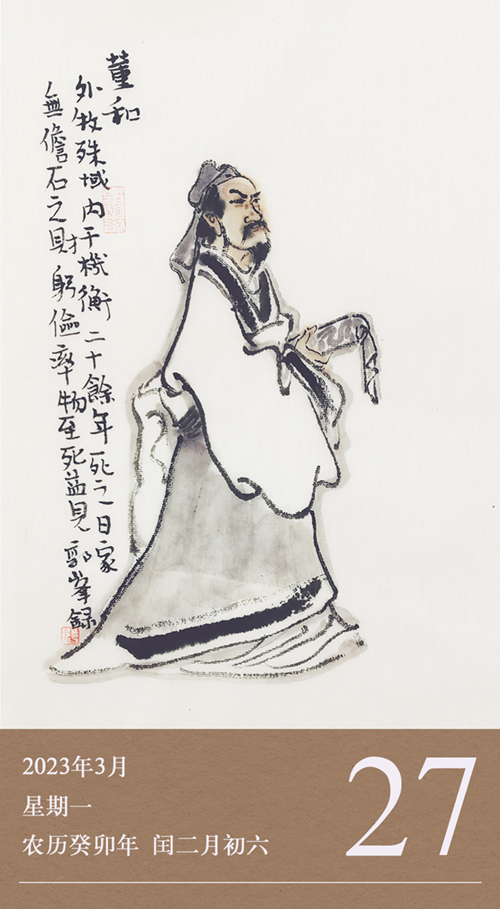 董和
外牧殊域内干機衡二十餘年死之日家
無儋石之財躬儉率物至死益見 峯録
2023年3月
星期一
农历癸卯年 闰二月初六
27